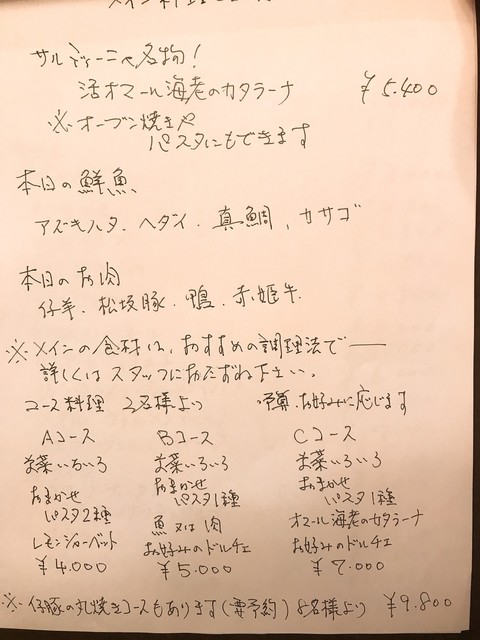 メイン料理
サルディーニャ名物!
活オマール海老のカタラーナ ¥5.400
※オーブン焼きや
パスタにもできます
本日の鮮魚
アズキハタ、ヘダイ、真鯛、カサゴ
本日のお肉
仔羊、松坂豚、鴨、赤姫牛
※メインの食材は、おすすめの調理法で――
詳しくはスタッフにおたずね下さい。
コース料理 2名様より 予算、お好みに応じます
Aコース Bコース Cコース
前菜いろいろ 前菜いろいろ 前菜いろいろ
おまかせ おまかせ おまかせ
パスタ2種 パスタ1種 パスタ1種
レモンシャーベット 魚又は肉 オマール海老のカタラーナ
¥4.000 お好みのドルチェ お好みのドルチェ
¥5.000 ¥7.000
※仔豚の丸焼きコースもあります(要予約)8名様より ¥9.800